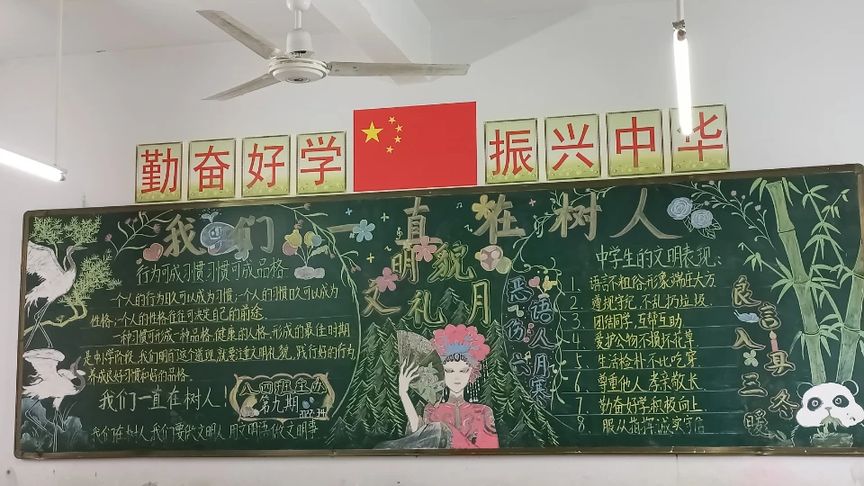 勤奋好学 振兴中华
我们一直在树人
文明礼貌月
行为可成习惯习惯可成品格
一个人的行为日久可以成为习惯,一个人的习惯日久可以成为
性格,一个人的性格往往可决定自己的前途。
一种习惯可形成一种品格,健康的人格,形成的最佳时期
是中小学阶段,我们明了这个道理,就要注重文明礼貌,践行好的行为
养成良好习惯和好的品格
我们一直在树人!
第九期
我们在树人,我们要做文明人,用文明语做文明事
恶语伤人六月寒
中学生的文明表现:
1. 语言不粗俗,形象端庄大方
2. 遵规守纪,不乱扔垃圾
3. 团结同学,互帮互助
4. 爱护公物不损坏花草
5. 生活俭朴不比吃穿
6. 尊重他人,孝亲敬长
7. 勤奋好学积极向上
8. 服从指挥诚实守信
良言一入三冬暖